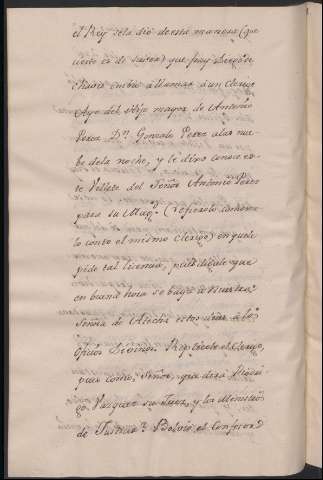 el Rey se la dió de esta manera (que
cierto es de saber) que fray Diego de
Chaves embió a llamar a un Clerigo
Ayo del Hijo mayor de Antonio
Perez Dn. Gonzalo Perez a las nue-
be de la noche, y le dijo
Villete del Señor Antonio Perez
para su Mag.d (refierelo como me
lo conto el mismo Clerigo) en que le
pide tal licencia, pues digale que
en buena hora se baya a Nuestra
Señora de Atocha estos dias a los
oficios Divinos. Replicole el Clerigo,
pues como, Señor, que dirá Rodri-
go Vazquez su Juez, y los Ministros
de Justicia? Bolvio el Confesor